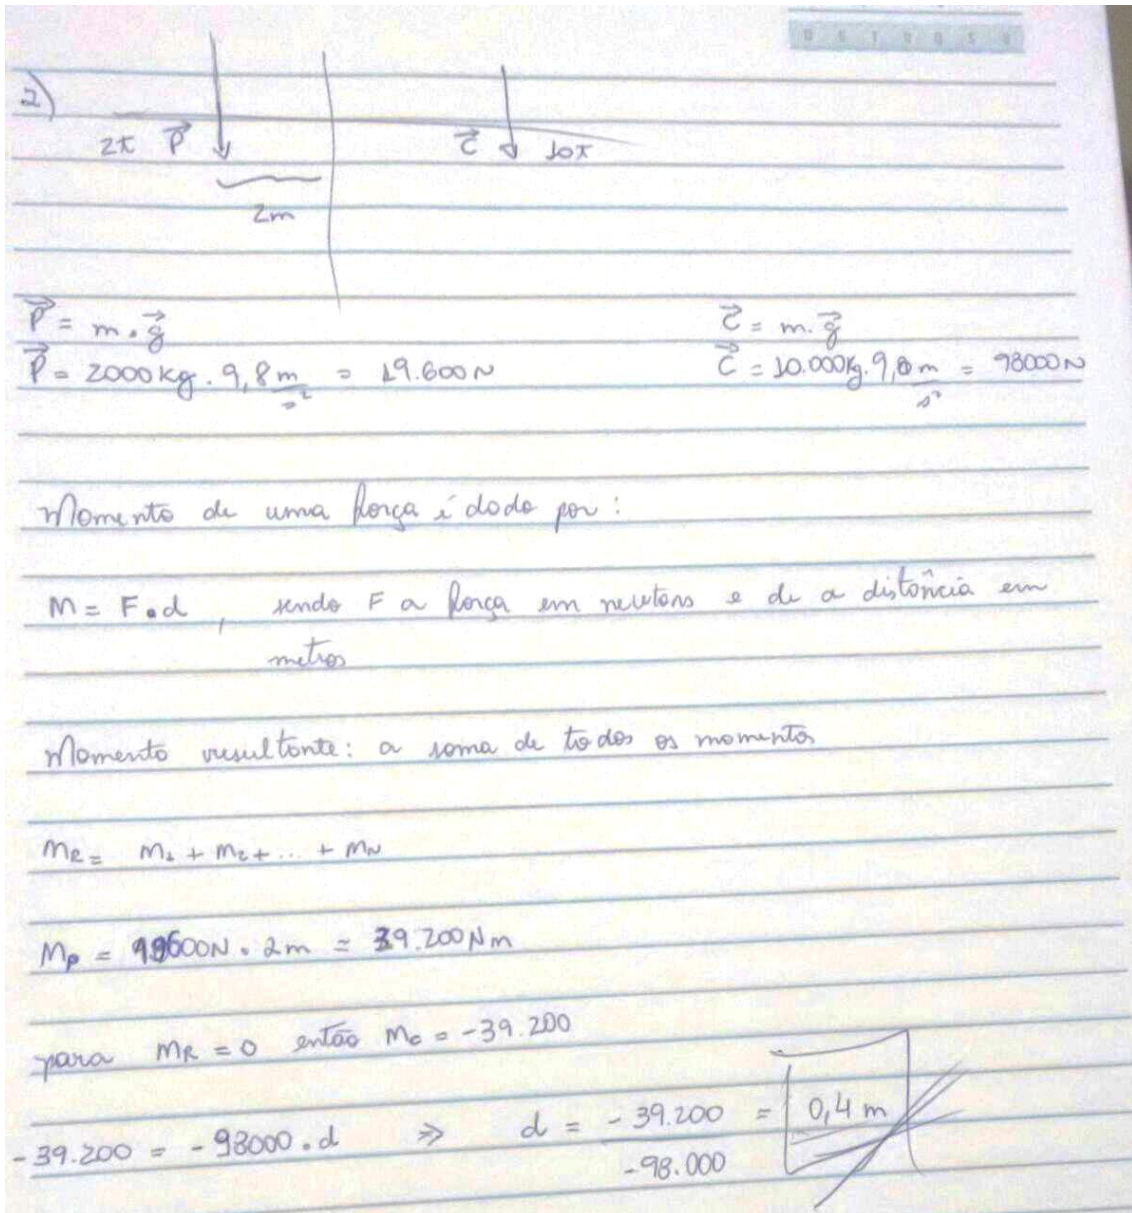 2)
2t P⃗
C⃗ 10t
2m
P⃗ = m . g⃗
C⃗ = m . g⃗
P⃗ = 2000kg . 9,8 m/s² = 19.600N
C⃗ = 10.000kg . 9,8 m/s² = 98000N
Momento de uma força é dado por:
M = F . d , sendo F a força em newtons e d a distância em
metros
Momento resultante: a soma de todos os momentos
MR = M1 + M2 + ... + MN
MP = 19600N . 2m = 39.200Nm
para MR = 0 então Mc = -39.200
-39.200 = -98000 . d ⇒ d = -39.200 / -98.000 = 0,4 m